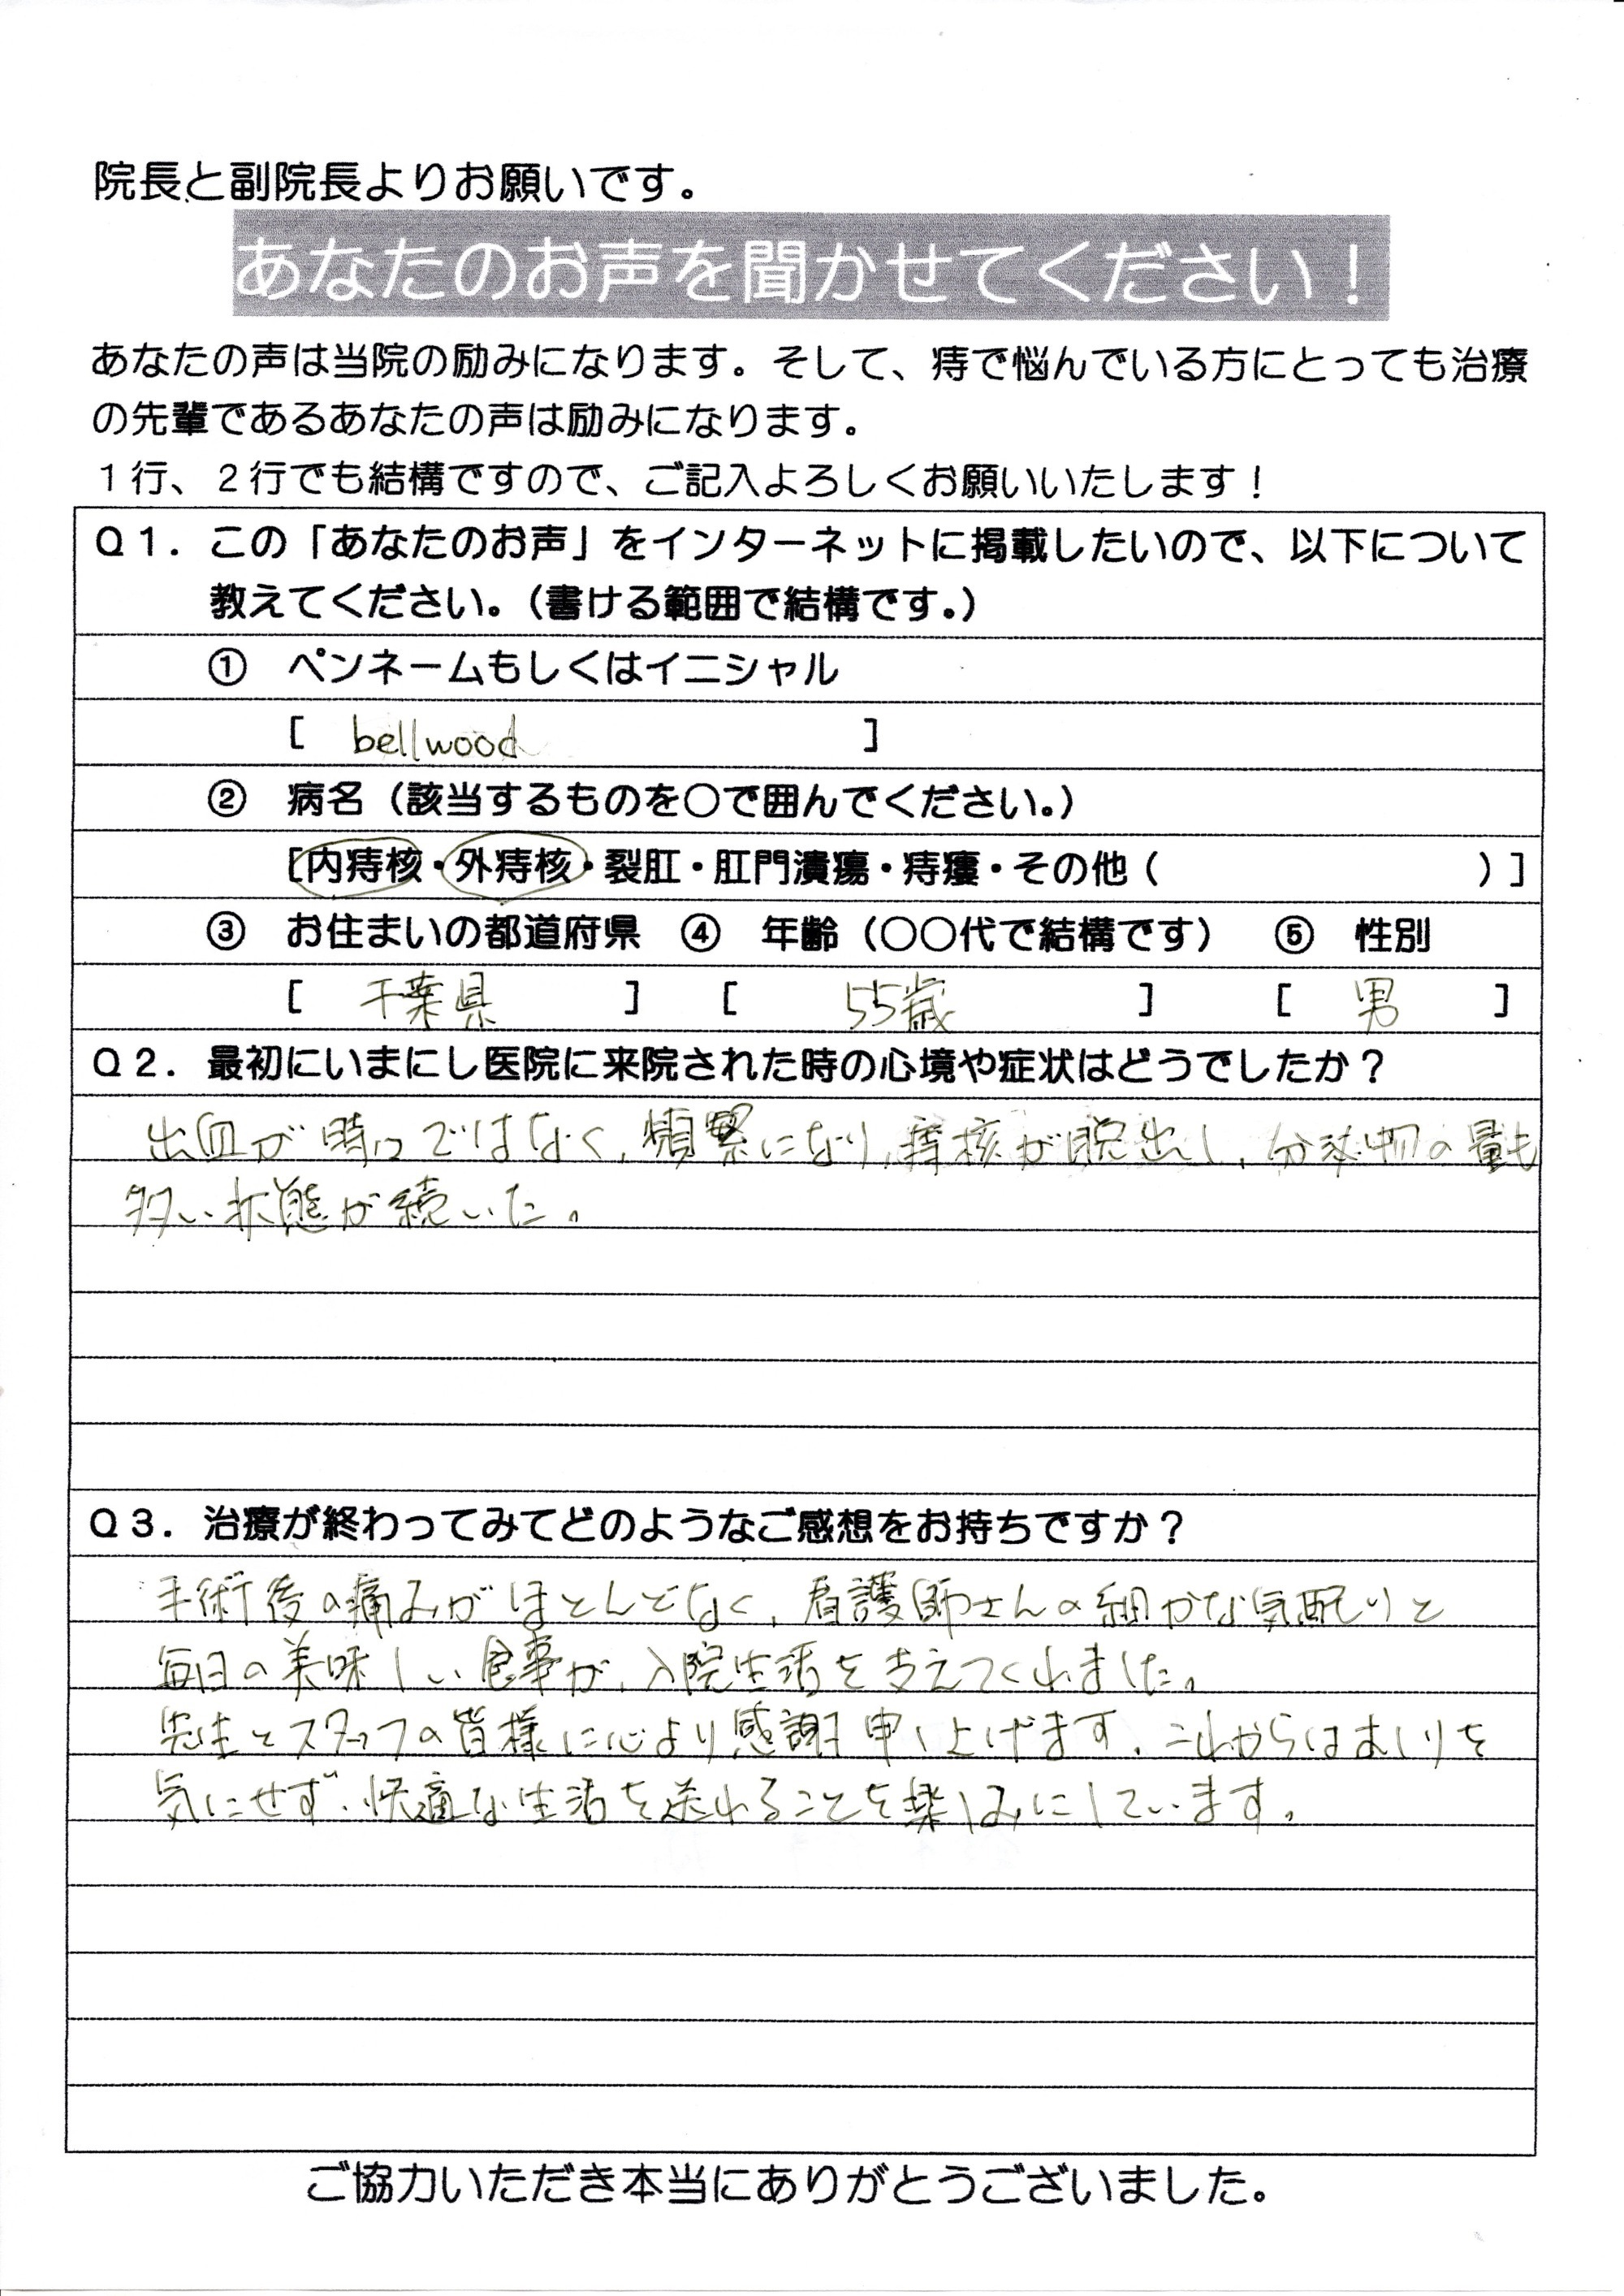 院長と副院長よりお願いです。
あなたのお声を聞かせてください！
あなたの声は当院の励みになります。そして、痔で悩んでいる方にとっても治療
の先輩であるあなたの声は励みになります。
１行、２行でも結構ですので、ご記入よろしくお願いいたします！
Ｑ１．この「あなたのお声」をインターネットに掲載したいので、以下について
教えてください。（書ける範囲で結構です。）
① ペンネームもしくはイニシャル
[ bellwood ]
② 病名（該当するものを○で囲んでください。）
[内痔核・外痔核・裂肛・肛門潰瘍・痔瘻・その他（ ）]
③ お住まいの都道府県 ④ 年齢（○○代で結構です） ⑤ 性別
[ 千葉県 ] [ 55歳 ] [ 男 ]
Ｑ２．最初にいまにし医院に来院された時の心境や症状はどうでしたか？
出血が時々ではなく、頻繁になり、痔核が脱出し、分泌物の量も
多い状態が続いた。
Ｑ３．治療が終わってみてどのようなご感想をお持ちですか？
手術後の痛みがほとんどなく、看護師さんの細かな気配りと
毎日の美味しい食事が、入院生活を支えてくれました。
先生とスタッフの皆様に心より感謝申し上げます。これからはおしりを
気にせず、快適な生活を送れることを楽しみにしています。
ご協力いただき本当にありがとうございました。